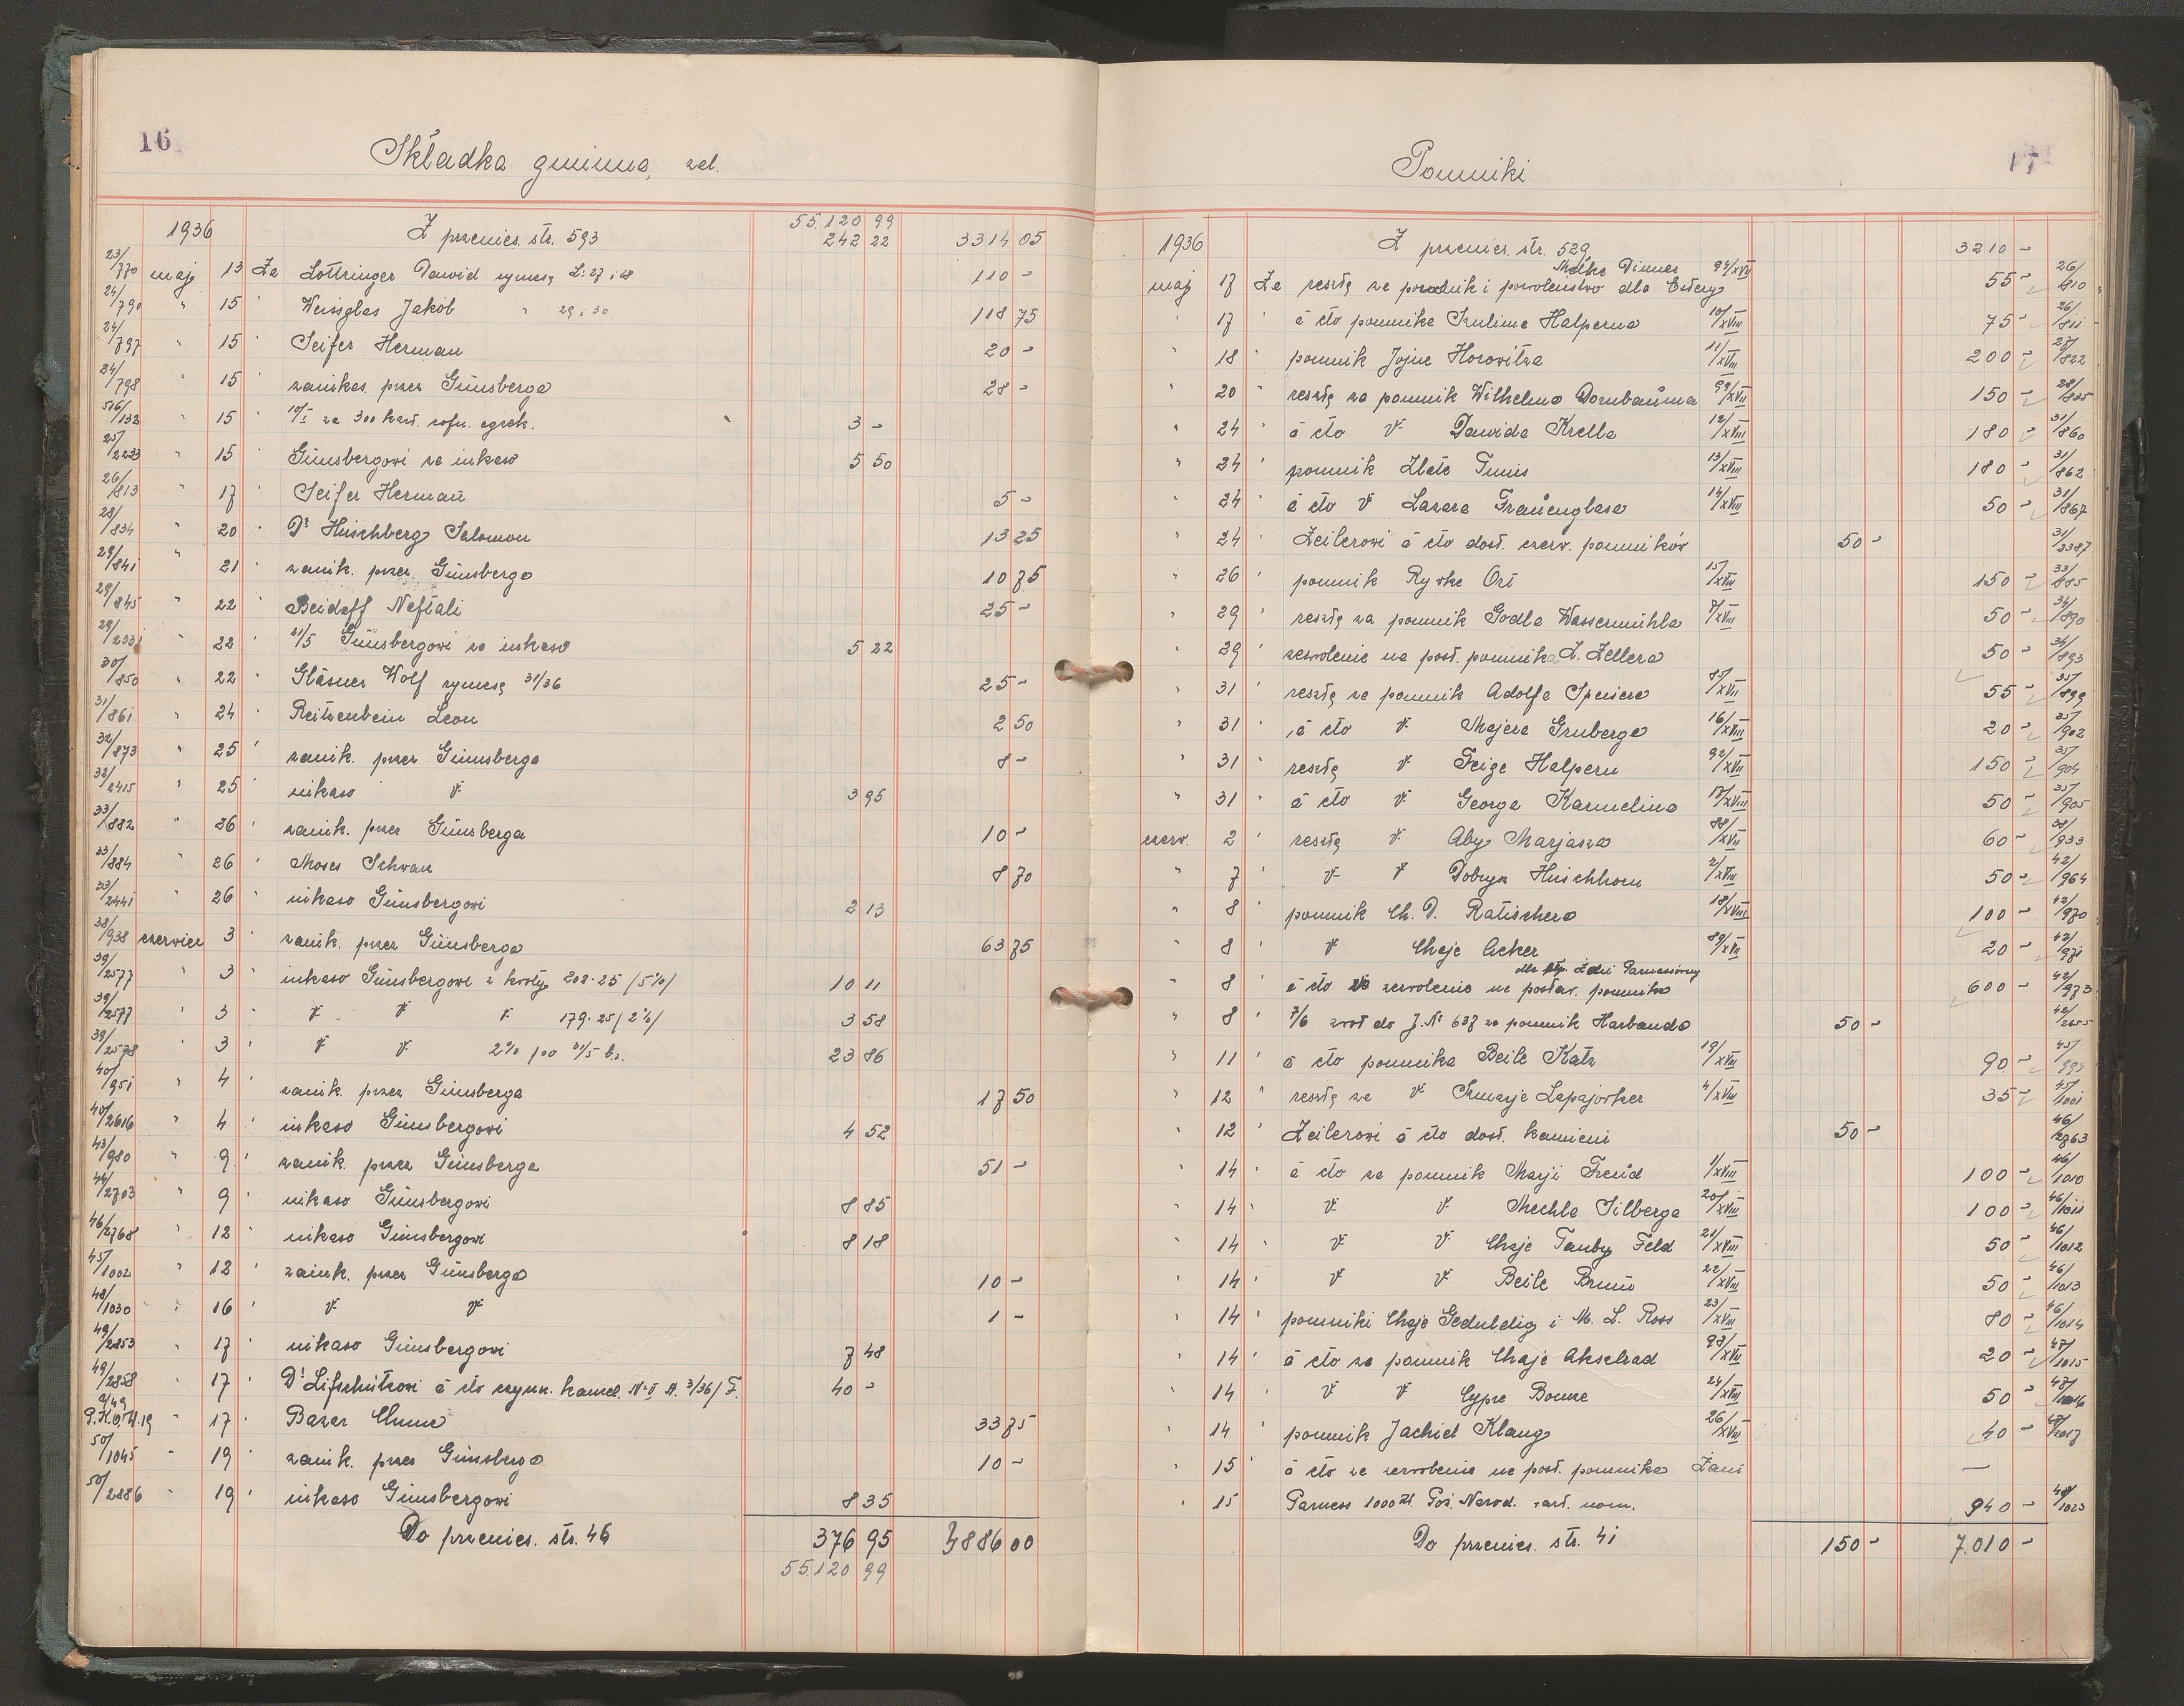 16
Składka gminna, zal.
55.120 99
1936 Z przenies. str. 593 242 22 3314 05
23/770 maj 13 Za Lottringer Dawid rymesą L: 27 i 28 110 -
24/790 " 15 " Weissglas Jakób " 29 i 30 118 75
24/797 " 15 " Seifer Herman 20 -
24/798 " 15 " zainkas. przez Günsberga 28 -
516/132 " 15 " 10/I za 300 kart. egzek. 3 -
25/2223 " 15 " Günsbergowi za inkaso 5 50
26/813 " 17 " Seifer Herman 5 -
28/834 " 20 " Dr Hirschberg Salomon 13 25
29/841 " 21 " zaink. przez Günsberga 10 75
29/845 " 22 " Beidaff Neftali 25 -
29/2331 " 22 " 21/5 Günsbergowi za inkaso 5 22
30/850 " 22 " Gläsner Wolf rymesą 31/36 25 -
31/861 " 24 " Reitzenbein Leon 2 50
32/873 " 25 " zaink. przez Günsberga 8 -
32/2415 " 25 " inkaso V 3 95
33/882 " 26 " zaink. przez Günsberga 10 -
33/884 " 26 " Moses Schwarz 8 70
33/2441 " 26 " inkaso Günsbergowi 2 13
38/938 czerwiec 3 " zaink. przez Günsberga 63 75
39/2577 " 3 " inkaso Günsbergowi z kwoty 202.25 /5%/ 10 11
39/2577 " 3 " V V V 179.25 /2%/ 3 58
39/2578 " 3 " V V 2% po 31/5 b.r. 23 86
40/951 " 4 zaink. przez Günsberga 17 50
40/2616 " 4 " inkaso Günsbergowi 4 52
43/980 " 9 " zaink. przez Günsberga 51 -
44/2703 " 9 " inkaso Günsbergowi 8 85
46/2768 " 12 " inkaso Günsbergowi 8 18
45/1002 " 12 " zaink. przez Günsberga 10 -
48/1030 " 16 " V V 1 -
49/2853 " 17 " inkaso Günsbergowi 7 48
49/2858 " 17 " Dr Lifschützowi á cto czynn. kancel. 3/36/ F. 40 -
P.K.O. 19 " 17 " Bazar Chune 33 75
50/1045 " 19 " zaink. przez Günsberga 10 -
50/2886 " 19 " inkaso Günsbergowi 8 35
Do przenies. str. 46 376 95 3886 00
55.120 99
17
Pomniki
1936 Z przenies. str. 529 3210 -
Malke Dimer
maj 17 Za resztę za pomnik i pozwoleństwo dla Estery 94/XVII 55 - 26/810
" 17 " á cto pomnika Szulima Halperna 10/XVIII 75 - 26/811
" 18 " pomnik Jojne Horowitza 11/XVIII 200 - 27/822
" 20 " resztę za pomnik Wilhelma Dornbauma 99/XVII 150 - 28/835
" 24 " á cto V Dawida Krella 12/XVIII 180 - 31/860
" 24 " pomnik Złate Tunis 13/XVIII 180 - 31/862
" 24 " á cto V Lazara Frauenglasa 14/XVIII 50 - 31/867
" 24 " Zeilerowi á cto dost. czerw. pomników 50 - 31/2387
" 26 " pomnik Rywke Ort 15/XVIII 150 - 33/885
" 29 " resztę za pomnik Godla Wassermühla 7/XVIII 50 - 34/890
" 29 " zezwolenie na post. pomnika L. Zellera 50 - 34/893
" 31 " resztę za pomnik Adolfa Speisera 85/XVII 55 - 35/899
" 31 " á cto V Majera Gruberga 16/XVIII 20 - 35/902
" 31 " resztę V Feige Halpern 92/XVII 150 - 35/904
" 31 " á cto V George Karmelina 17/XVIII 50 - 35/905
czerw. 2 " resztę V Aby Marjasza 88/XVII 60 - 38/933
" 7 " V V Dobrysz Hirschhorn 2/XVIII 50 - 42/964
" 8 " pomnik Ch. D. Ratischera 18/XVIII 100 - 42/970
" 8 " V Chaje Acker 89/XVII 20 - 42/971
dla śp. Żani Parnessówny
" 8 " á cto za zezwolenie na postaw. pomnika 600 - 42/973
" 8 " 7/6 zwrot do J. Nr 637 za pomnik Harbanda 50 - 42/2655
" 11 " á cto pomnika Beile Katz 19/XVIII 90 - 45/999
" 12 " resztę za V Szmarje Lapajowker 4/XVIII 35 - 45/1001
" 12 " Zeilerowi á cto dost. kamieni 50 - 46/2763
" 14 " á cto za pomnik Marji Freud 1/XVIII 100 - 46/1010
" 14 " V V Mechla Silberga 20/XVIII 100 - 46/1011
" 14 " V V Chaje Tauby Feld 21/XVIII 50 - 46/1012
" 14 " V V Beile Bruno 22/XVIII 50 - 46/1013
" 14 " pomniki Chaje Geduldig i M. L. Ross 23/XVIII 80 - 46/1014
" 14 " á cto za pomnik Chaje Akselrad 98/XVII 20 - 47/1015
" 14 " V V Cypre Bonze 24/XVIII 50 - 47/1016
" 14 " pomnik Jachiel Klang 26/XVIII 40 - 47/1017
" 15 " á cto za zezwolenie na post. pomnika Żani —
" 15 Parness 1000 zł. Poż. Narod. wart. nom. 940 - 48/1023
Do przenies. str. 41 150 - 7.010 -